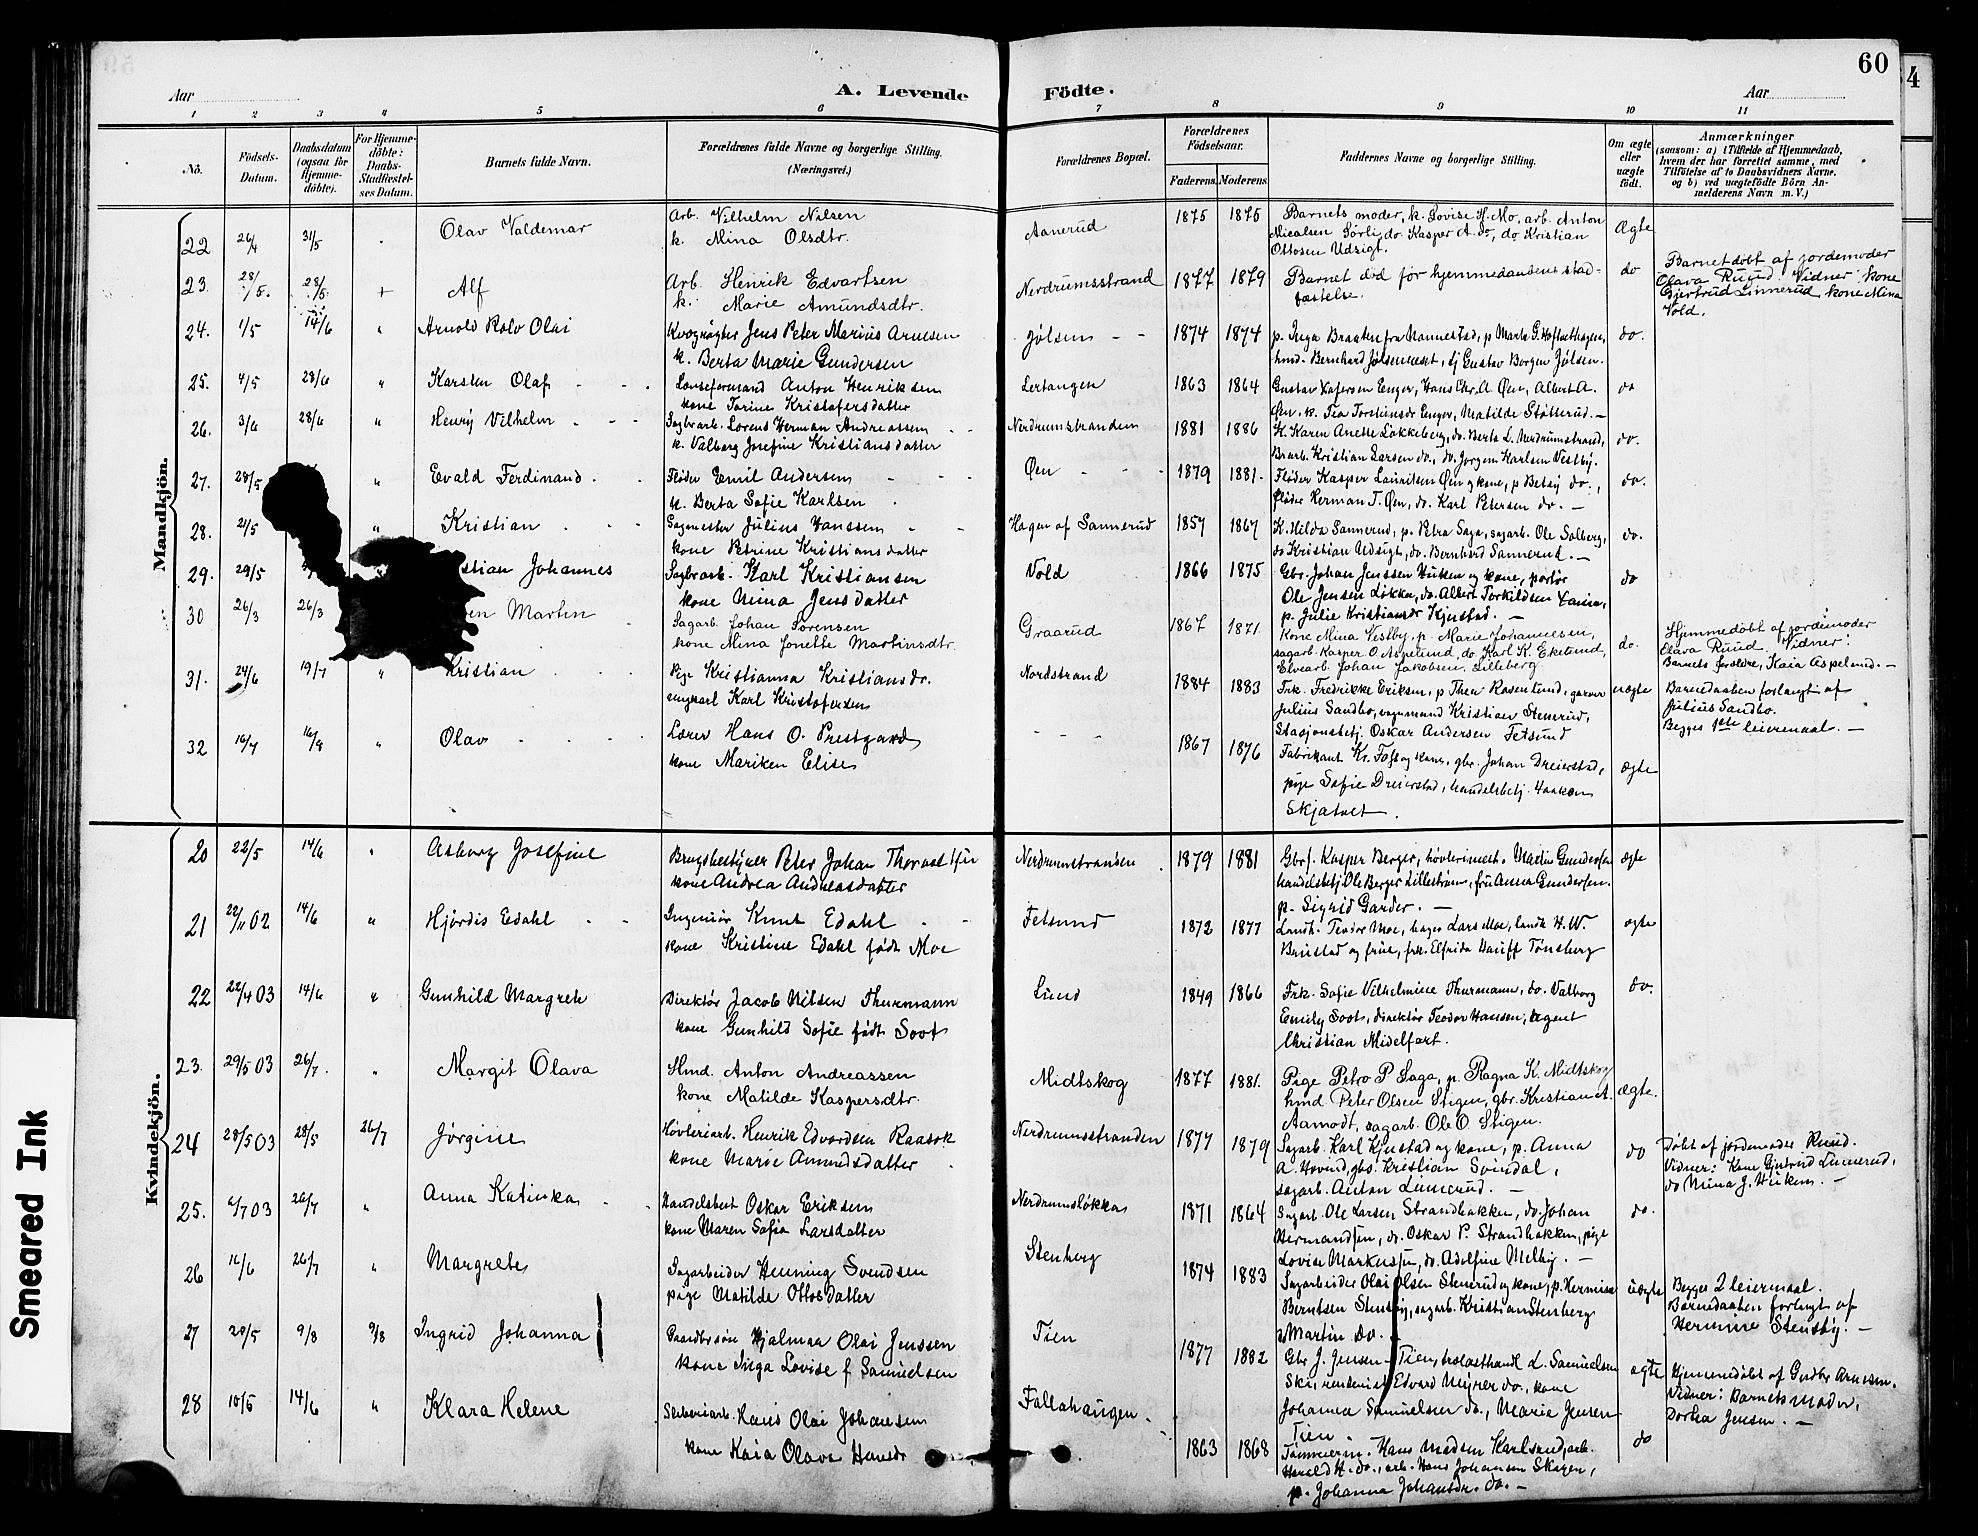 60
4
Aar
A. Levende
Födte.
Aar
1 2 3 4 5 6 7 8 9 10 11
No.
Födsels-
Datum.
Daabsdatum
(ogsaa for
Hjemme-
döbte).
For Hjemme-
döbte:
Daabs-
Stadfæstel-
ses Datum.
Barnets fulde Navn.
Forældrenes fulde Navne og borgerlige Stilling.
(Næringsvei.)
Forældrenes Bopæl.
Forældrenes
Födselsaar.
Faderens. Moderens.
Faddernes Navne og borgerlige Stilling.
Om ægte
eller
uægte
født.
Anmærkninger
(saasom: a) i Tilfælde af Hjemmedaab,
hvem der har forrettet samme, med
Tilföielse af to Daabsvidners Navne.
og b) ved uægtefödte Börn An-
melderens Navn m. V.)
Mandkjön.
22 26/4 31/5 Olav Valdemar Arb. Vilhelm Nilsen
k. Mina Olsdtr.
Aanerud 1875 1875 Barnets moder, k. Lovise H. Mo, arb. Anton
Nicolsen Sörli, do. Kasper A. do, do Kristian
Ottosen Udsigt.
Ægte
23. 28/5. 28/5 + Alf Arb. Henrik Edvartsen
k. Marie Amundsdtr.
Nerdrumsstrand 1877 1879 Barnet död för hjemmedaabens stad-
fæstelse.
do Barnet döbt af jordemoder
Olava Ruud. Vidner: kone
Gjertrud Linnerud kone Mina
Vold.
24. 1/5 14/6 " Arnold Rolv Olai Kvægrøgter Jens Peter Marius Arnesen
k. Berta Marie Gundersen
Jølsen 1874 1874 p. Inga Braaten fra Nannestad, p Marta G.
hmd. Bernhard Jølseneset, tj Gustav Borgen Jølsen.
do.
25. 4/5 28/6 " Karsten Olaf Lenseformand Anton Henriksen
kone Torine Kristofersdatter
Lertangen 1863 1864 Gustav Enger, Hans Chr. A. Øen, Albert A.
Øen, p. Tea Enger, Matilde Støtterud. —
do
26. 3/6 28/6 " Henry Vilhelm Sagbrarb. Lorens Herman Andreassen
k. Valborg Josefine Kristiansdatter
Nerdrumstranden 1881 1886 K. Karen Anette Løkkeberg, do. Berte L. Nerdrumstrand,
Brarb. Kristian Larsen do., do. Jørgen Karlsen Vestby.
do.
27. 28/5 " Evald Ferdinand Fløder Emil Andersen
k. Berta Sofie Karlsen
Øen 1879 1881. Fløder Kasper Lauritsen Øen og kone, p Betsy do.,
fløder Herman T. Øen, do. Karl Petersen do. —
do.
28. 21/5 " Kristian Sagmester Julius Hanssen
kone Petrine Kristiansdatter
Hagen af Sannerud 1857 1867 K. Hilda Sannerud, p. Petra Saga, sagarb. Ole Solberg,
do Kristian Udsigt, do. Bernhard Sannerud. —
do.
29. 29/5 stian Johannes Sagbrarb. Karl Kristiansen
kone Mina Jensdatter
Vold 1866 1875 Gbr. Johan Jenssen Huken og kone, portør
Ole Jensen Løkka, do. Albert Torkildsen
p. Julie Kristiansdr Kjustad. —
do
30 26/3 26/3 en Martin Sagarb. Johan Sørensen
kone Mina Jonette Martinsdtr.
Graarud 1867 1871 Kone Mina Vestby, p. Marie Johannesen,
sagarb. Kasper O Aspelund, do. Karl K. Ekelund,
Elvearb. Johan Jakobsen Lilleberg.
do. Hjemmedøbt af jordemoder
Olava Ruud. Vidner:
Barnets forældre, Kaia Aspelund. —
31. 24/6 19/7 " Kristian Pige Kristianna Kristiansdr.
ungkarl Karl Kristofersen
Nordstrand 1884 1883 Frk. Fredrikke Eriksen, p Thea Rosenlund, garver
Julius Sandbo, Kristian Stenerud,
Stasjonsbetj. Oskar Andersen Fetsund
uægte Barnedaaben forlangt af
Julius Sandbo.
Begges 1ste leiermaal. —
32 16/7 16/8 " Olav Lærer Hans O. Prestgard
kone Mariken Elise
1867 1876 Fabrikant Kr. Toft og kone, gbr. Johan Dreierstad,
pige Sofie Dreierstad, handelsbetj. Haakon
Skjatvet.
ægte
Kvindekjön.
20 22/5 14/6 " Asborg Josefine Brugsbestyrer Peter Johan
kone Andrea Andreasdatter
Nerdrumstranden 1879 1881 Gbr. Kasper Berger, høvlerimest. Martin Gundersen
handelsbetj Ole Berger Lillestrøm, fru Anna Gundersen.
p. Sigrid Garder. —
ægte
21 22/11 02 14/6 " Hjørdis Edahl Ingeniør Knut Edahl
kone Kristine Edahl født Moe
Fetsund 1872 1877 Landh. Teodor Moe, Lars Moe, landh H. W.
Brustad og frue, frk. Elfrida Hauff Tønsberg
ægte
22 22/4 03 14/6 " Gunhild Margreth Direktør Jacob Nilsen Thurmann
kone Gunhild Sofie født Soot
Lund 1849 1866 Frk. Sofie Vilhelmine Thurmann, do. Valborg
Emily Soot, direktør Teodor Hansen, agent
Christian Midelfart.
do.
23. 29/5 03 26/7. " Margit Olava Hmd. Anton Andreassen
kone Matilde Kaspersdtr.
Midtskog 1877 1881. Pige Petra P Saga, p. Ragna K. Midtskog
hmd. Peter Olsen Stigen, gbr. Kristian A.
Aamodt, sagarb. Ole O. Stigen.
ægte.
24 28/5 03 28/5 26/7 Jørgine Høvleriarb. Henrik Edvardsen Raasok
kone Marie Amundsdatter
Nerdrumsstranden 1877 1879 Sagarb. Karl Kjustad og kone, p. Anna
A. Hovind, gbs. Kristian Svindal,
sagarb. Anton Linnerud. —
do Døbt af jordemoder Ruud.
Vidner: Kone Gjertrud Linnerud,
do Mina J. Huken. —
25. 6/7 03 26/7 " Anna Katinka Handelsbest Oskar Eriksen
kone Maren Sofia Larsdatter
Nerdrumsløkka 1871 1864 Sagarb. Ole Larsen Strandbakken, do. Johan
Hermandsen, do. Oskar P. Strandbakken, pige
Lovise Markussen, do. Adolfine Melby. —
do.
26 16/6 26/7 " Margrete Sagarbeider Henning Svendsen
pige Matilde Ottosdatter
Stenberg 1874 1883 Sagarbeider Olai Olsen Stenerud og kone, p. Hermine
Berntsen Stensby, sagarb. Kristian Stenberg
Martin do. —
uægte Begges 2 leiermaal.
Barnedaaben forlangt af
Hermine Stensby. —
27 20/5 9/8 9/8 Ingrid Johanna Gaardbr.søn Hjalmar Olai Jenssen
kone Inga Lovise f Samuelsen
Tien 1877 1882 Gbr J. Jensen Tien, trælasthandl L. Samuelsen
Ski, rentenist Edvard Meyer do., kone
Johanna Samuelsen do., Marie Jensen
Tien —
ægte Hjemmedøbt af Gudbr Arnesen.
Vidner: Barnets Moder,
Dortea Jensen. —
28 10/5 14/6 " Klara Helene Sliberiarb. Hans Olai Johansen
kone Kaia Olava Hansdr
Fallahaugen. 1863 1868 Tømmerm. Hans Madsen Karlsrud, arb.
Harald H. do., arb. Hans Johansen Skogen,
p. Johanna Johansdr. do. —
do
Smeared Ink